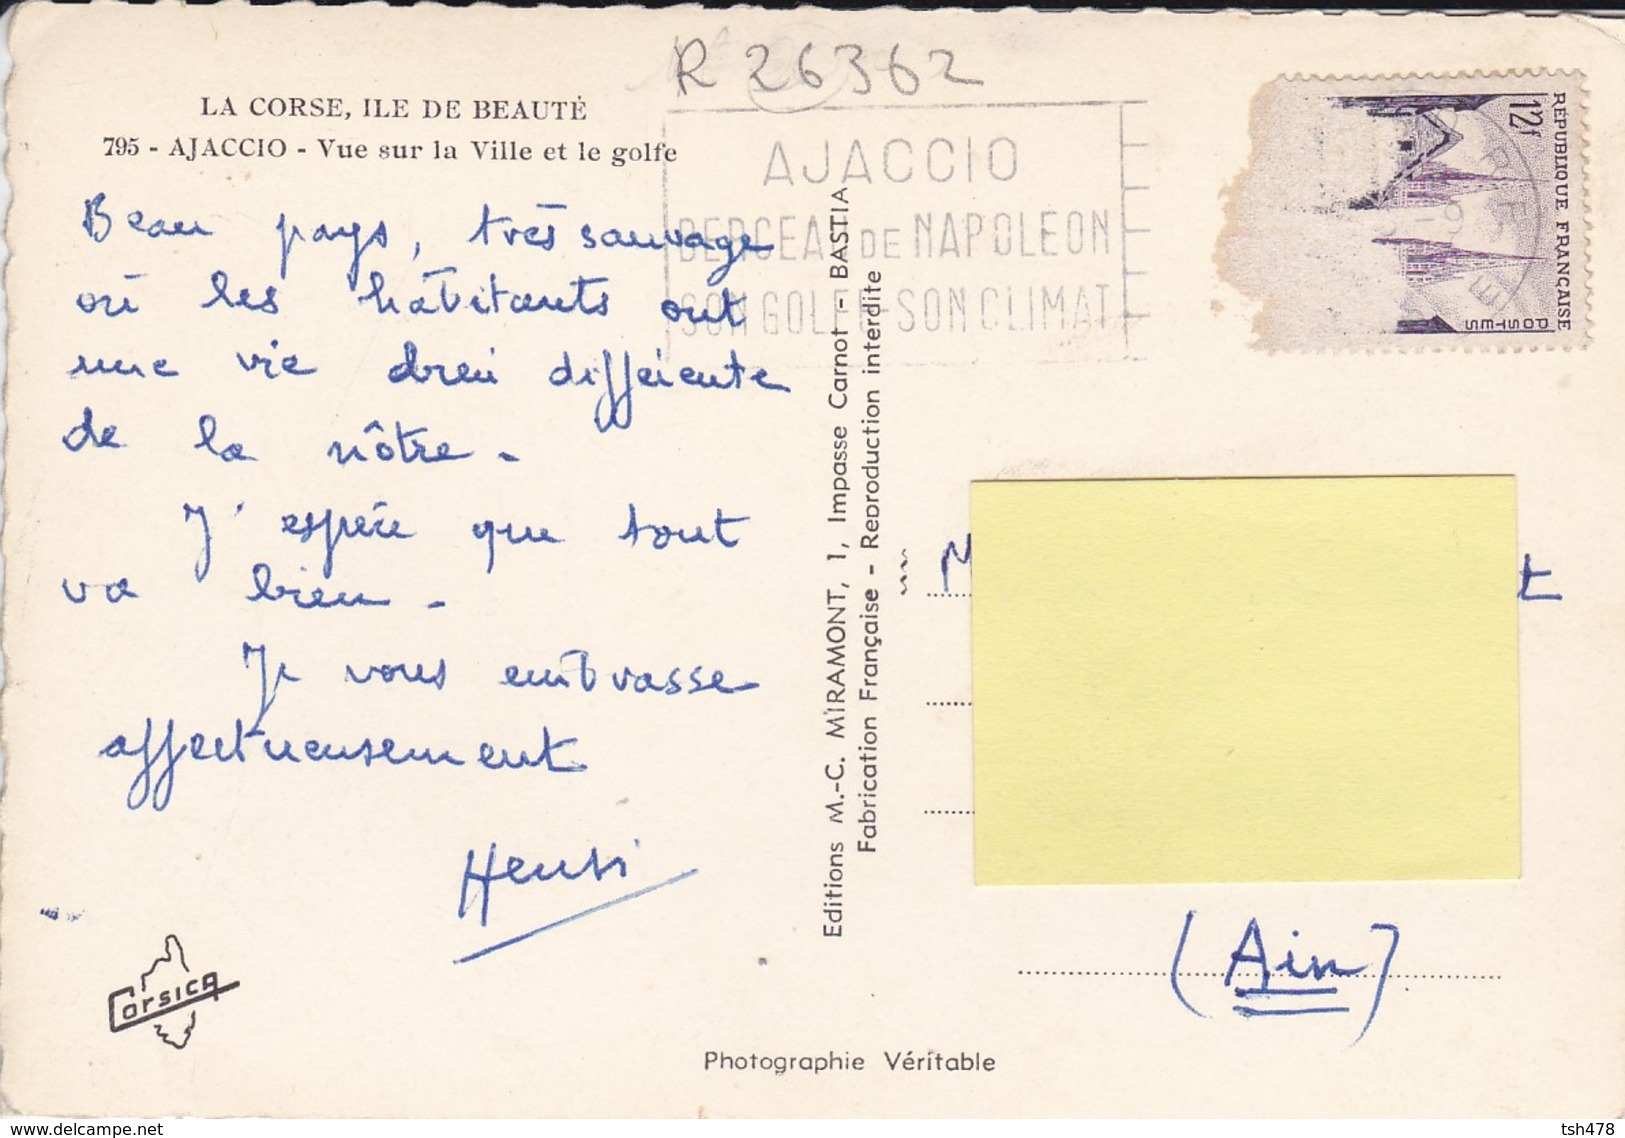 R 26362
LA CORSE, ILE DE BEAUTÉ
795 - AJACCIO - Vue sur la Ville et le golfe
AJACCIO
BERCEAU DE NAPOLEON
SON GOLFE-SON CLIMAT
12f
REPUBLIQUE FRANÇAISE
POSTES
Beau pays, très sauvage
où les habitants ont
une vie bien différente
de la nôtre.
J'espère que tout
va bien.
Je vous embrasse
affectueusement
Henri
Corsica
Editions M.-C. MIRAMONT, 1, Impasse Carnot - BASTIA
Fabrication Française - Reproduction interdite
M
t
(Ain)
Photographie Véritable
www.delcampe.net
tsh478